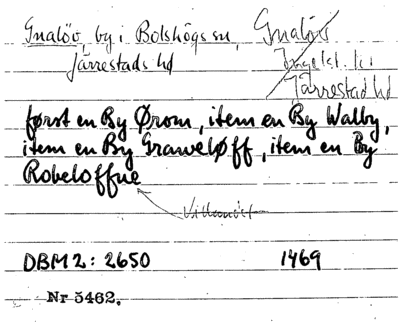 Gnalöv, by i Bolshögs sn, Gnalöv
Järrestads hd
Ingelst. hd
Järrestad hd
først en By Ørom, item en By Walby,
item en By Graweløff, item en By
Robeloffue
DBM 2: 2650 1469
Nr 5462.